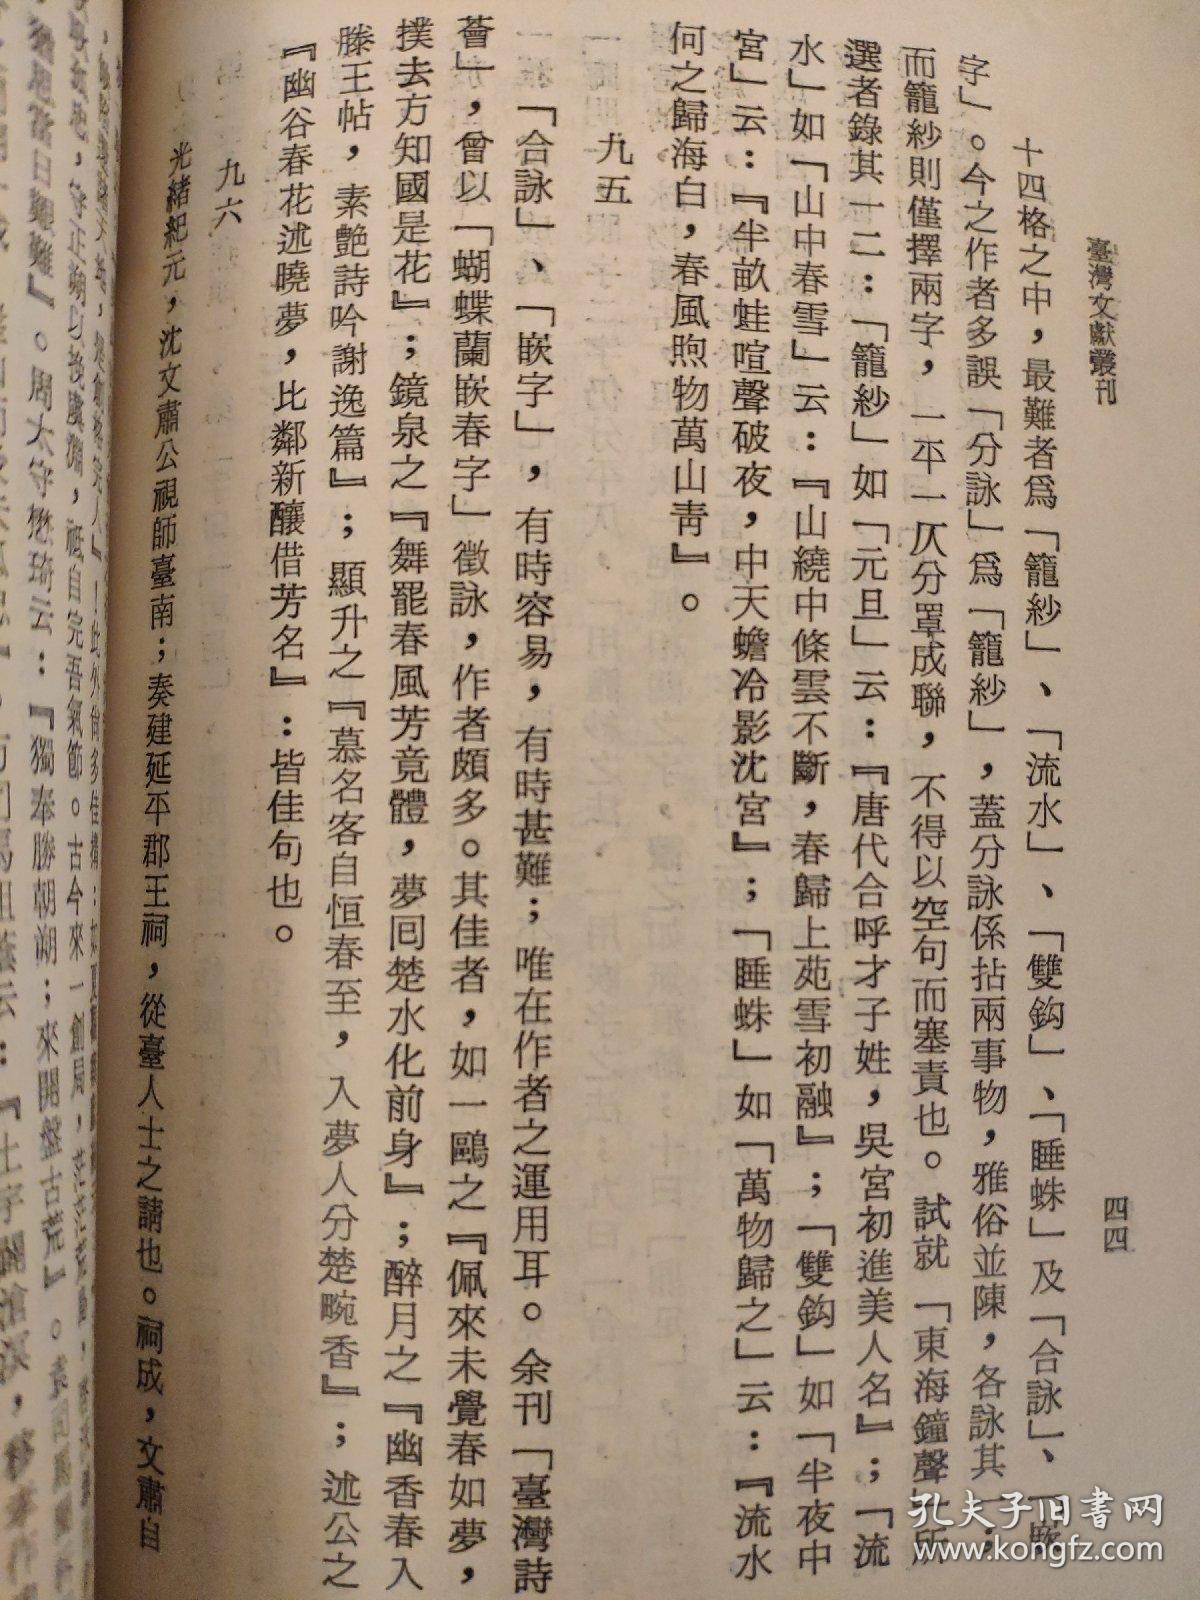 臺灣文獻叢刊
四四
十四格之中，最難者爲「籠紗」、「流水」、「雙鈎」、「睡蛛」及「合詠」、「嵌
字」。今之作者多誤「分詠」爲「籠紗」，蓋分詠係拈兩事物，雅俗並陳，各詠其一；
而籠紗則僅擇兩字，一平一仄分罩成聯，不得以空句而塞責也。試就「東海鐘聲」所
選者錄其一二：「籠紗」如「元旦」云：『唐代合呼才子姓，吳宮初進美人名』；「流
水」如「山中春雪」云：『山繞中條雲不斷，春歸上苑雪初融』；「雙鈎」如「半夜中
宮」云：『半畝蛙喧聲破夜，中天蟾冷影沈宮』；「睡蛛」如「萬物歸之」云：『流水
何之歸海白，春風煦物萬山靑』。
九五
「合詠」、「嵌字」，有時容易，有時甚難；唯在作者之運用耳。余刊「臺灣詩
薈」，曾以「蝴蝶蘭嵌春字」徵詠，作者頗多。其佳者，如一鷗之『佩來未覺春如夢，
撲去方知國是花』；鏡泉之『舞罷春風芳竟體，夢囘楚水化前身』；醉月之『幽香春入
滕王帖，素艶詩吟謝逸篇』；顯升之『慕名客自恒春至，入夢人分楚畹香』；述公之
『幽谷春花述曉夢，比鄰新釀借芳名』：皆佳句也。
九六
光緖紀元，沈文肅公視師臺南；奏建延平郡王祠，從臺人士之請也。祠成，文肅自
，是創格完人』！此外尙多佳構：如夏
，守正朔以挽虞淵，祗自完吾氣節。古今來一創局，茫茫
』。周太守懋琦云：『獨奉勝朝朔；來開盤古荒』。袁司馬聞柝
云：『